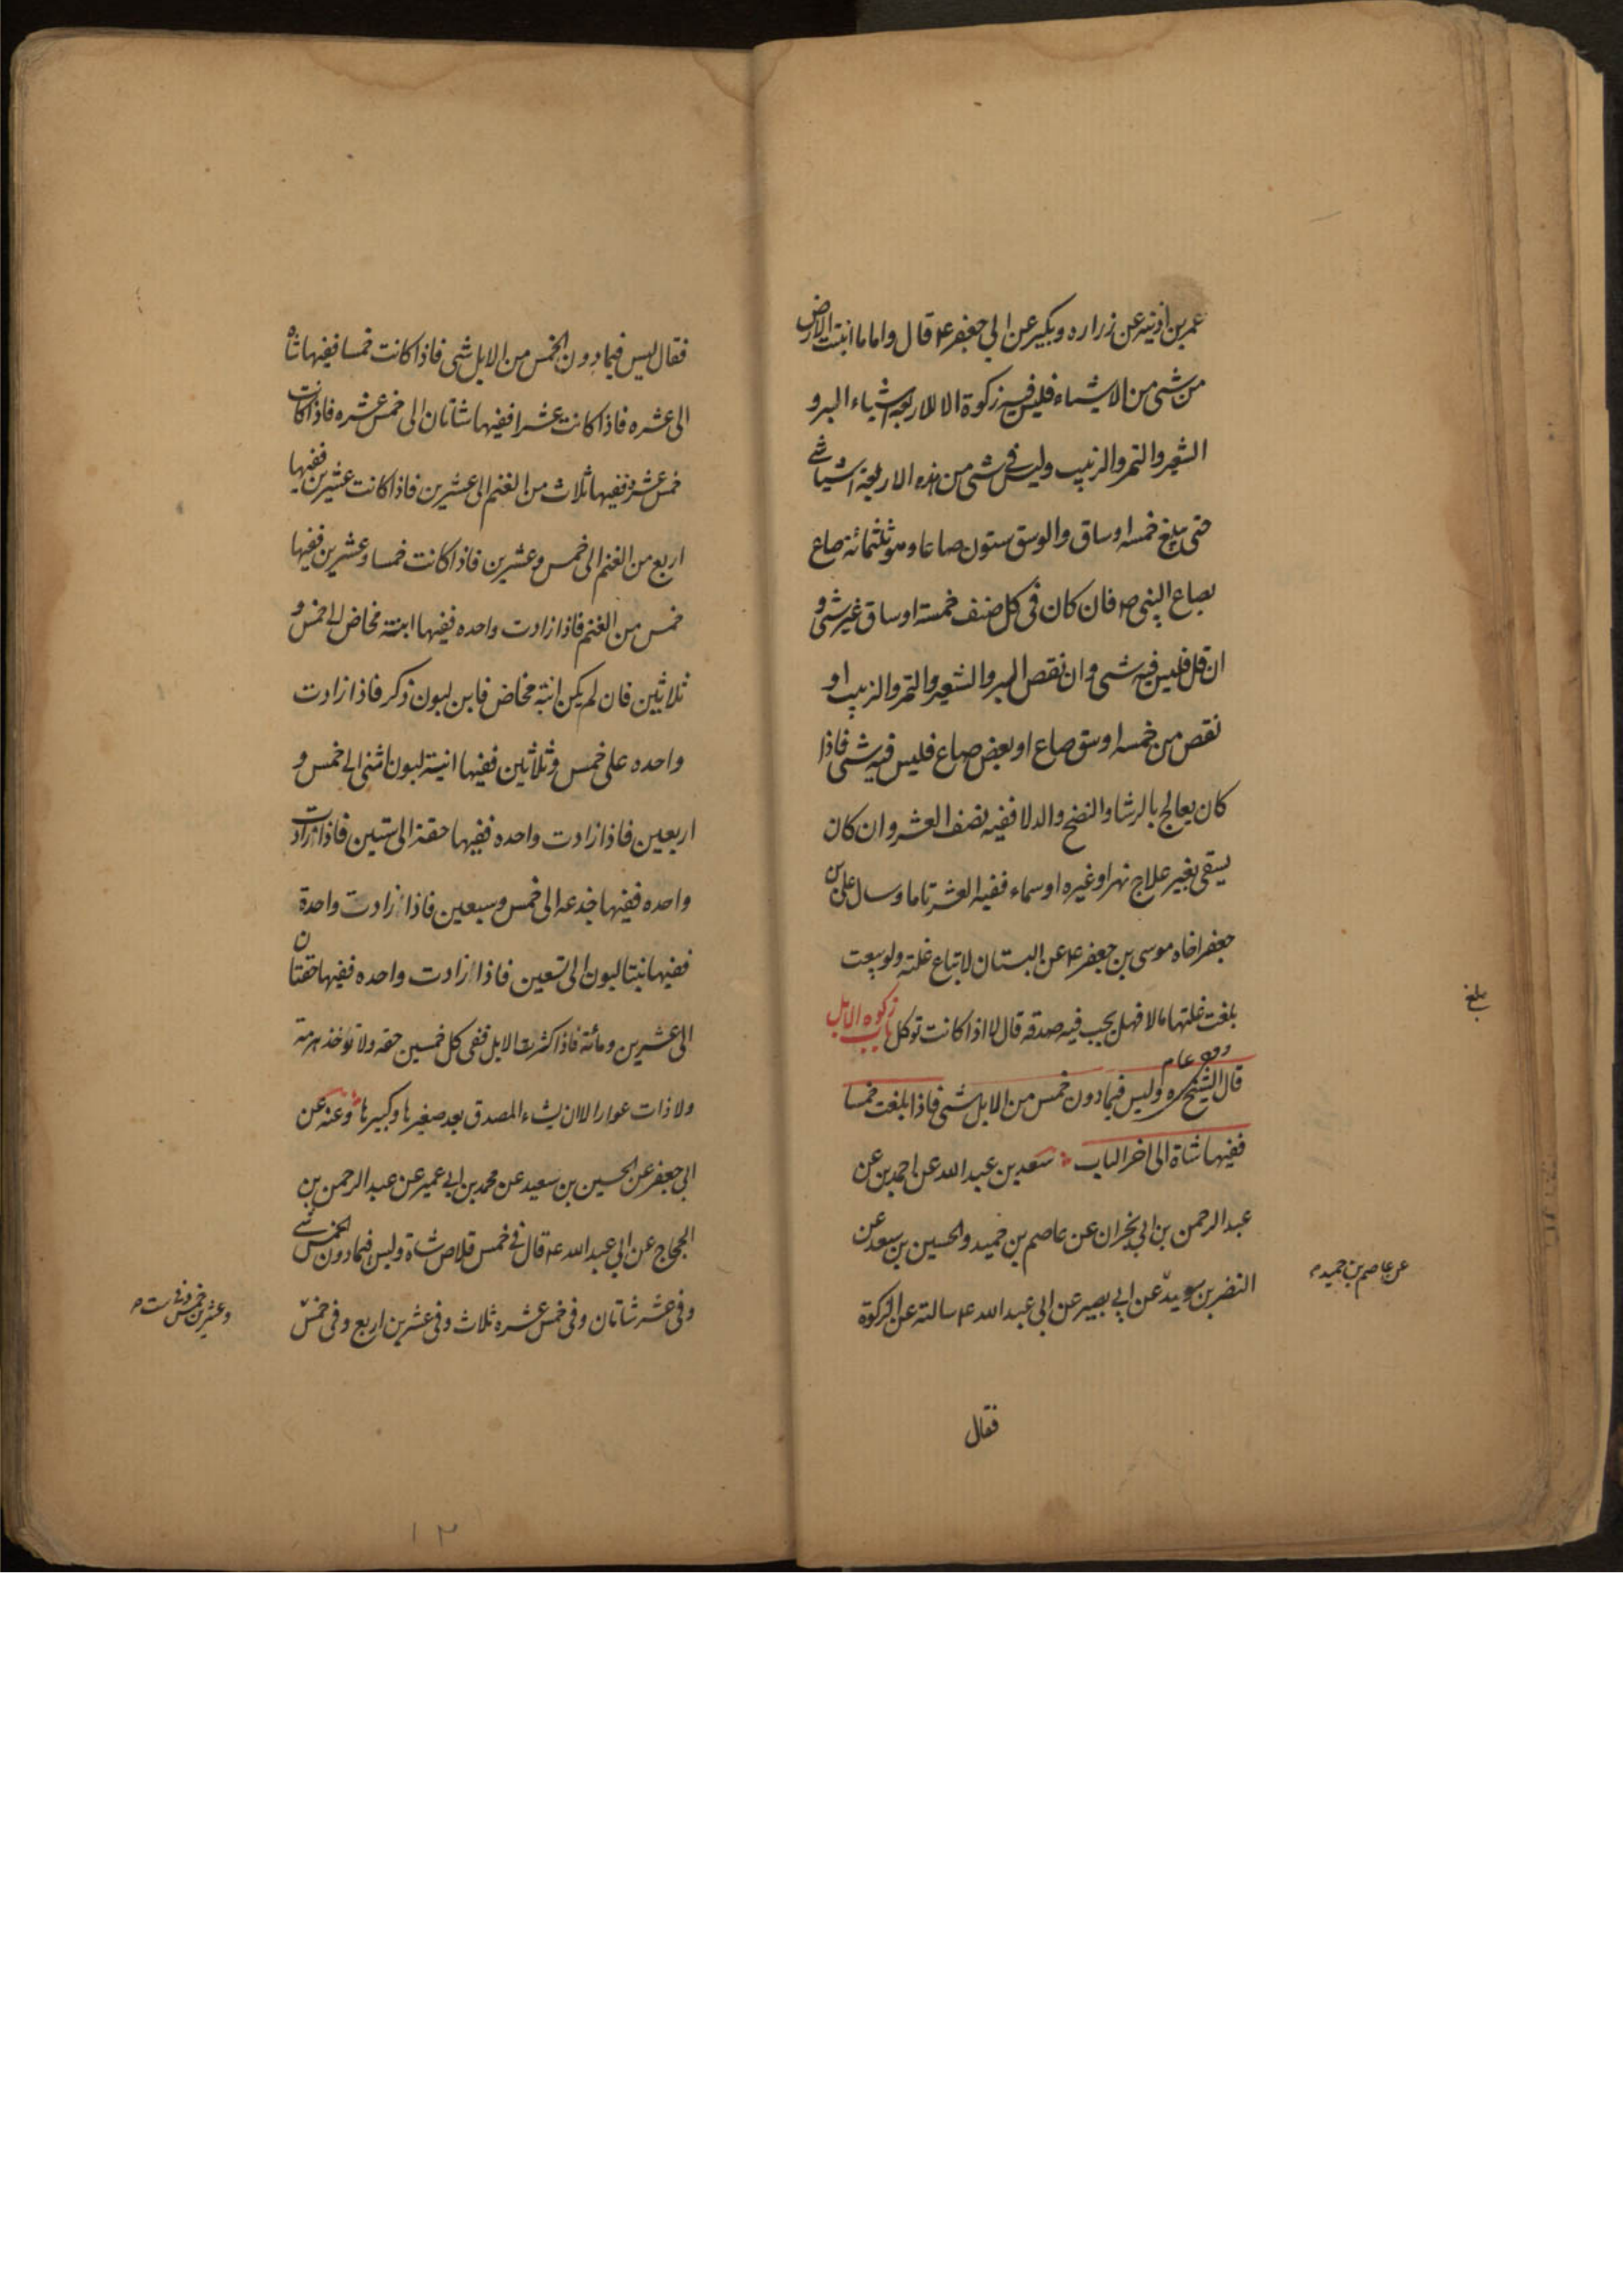 عمر بن اذينه عن زراره وبكير عن ابى جعفر ع قال واما ما انبتت الارض
من شى من الاشياء فليس فيه زكوة الا للاربعة اشياء البر و
الشعير والتمر والزبيب وليس فى شى من هذه الاربعة اشيا شى
حتى يبلغ خمسه اوساق والوسق ستون صاعا وهو ثلثمائة صاع
بصاع النبى ص فان كان فى كل صنف خمسة اوساق غير شى و
ان قل فليس فيه شى وان نقص البر والشعير والتمر والزبيب او
نقص من خمسه اوسق صاع او بعض صاع فليس فيه شى فاذا
كان يعالج بالرشا والنضح والدلا ففيه نصف العشر وان كان
يسقى بغير علاج نهر او غيره او سماء ففيه العشر تاما وسال على بن
جعفر اخاه موسى بن جعفر ع عن البستان لا تباع غلته ولو بيعت
بلغت غلتها مالا فهل يجب فيه صدقه قال لا اذا كانت توكل باب زكوه الابل
قال الشيخ ره وليس فيما دون خمس من الابل شى فاذا بلغت خمسا
ففيها شاة الى اخر الباب سعد بن عبد الله عن احمد بن عن
عبد الرحمن بن ابى نجران عن عاصم بن حميد والحسين بن سعيد عن
النضر بن سويد عن ابى بصير عن ابى عبد الله ع سالته عن الزكوة
فقال
بلغ
عن عاصم بن حميد م
فقال ليس فيما دون الخمس من الابل شى فاذا كانت خمسا ففيها شاه
الى عشره فاذا كانت عشرا ففيها شاتان الى خمس عشره فاذا كانت
خمس عشره ففيها ثلاث من الغنم الى عشرين فاذا كانت عشرين ففيها
اربع من الغنم الى خمس وعشرين فاذا كانت خمسا وعشرين ففيها
خمس من الغنم فاذا زادت واحده ففيها ابنة مخاض الى خمس و
ثلاثين فان لم يكن ابنة مخاض فابن لبون ذكر فاذا زادت
واحده على خمس وثلاثين ففيها ابنة لبون انثى الى خمس و
اربعين فاذا زادت واحده ففيها حقة الى ستين فاذا زادت
واحده ففيها جذعه الى خمس وسبعين فاذا زادت واحدة
ففيها بنتا لبون الى تسعين فاذا زادت واحده ففيها حقتان
الى عشرين ومائة فاذا كثرت الابل ففى كل خمسين حقه ولا توخذ هرمة
ولا ذات عوار الا ان يشاء المصدق يعد صغيرها وكبيرها وعنه عن
ابى جعفر عن الحسين بن سعيد عن محمد بن ابى عمير عن عبد الرحمن بن
الحجاج عن ابى عبد الله ع قال فى خمس قلاص شاة وليس فيما دون الخمس شى
وفى عشر شاتان وفى خمس عشره ثلاث وفى عشرين اربع وفى خمس
وعشرين خمس وفى ست م
١٣